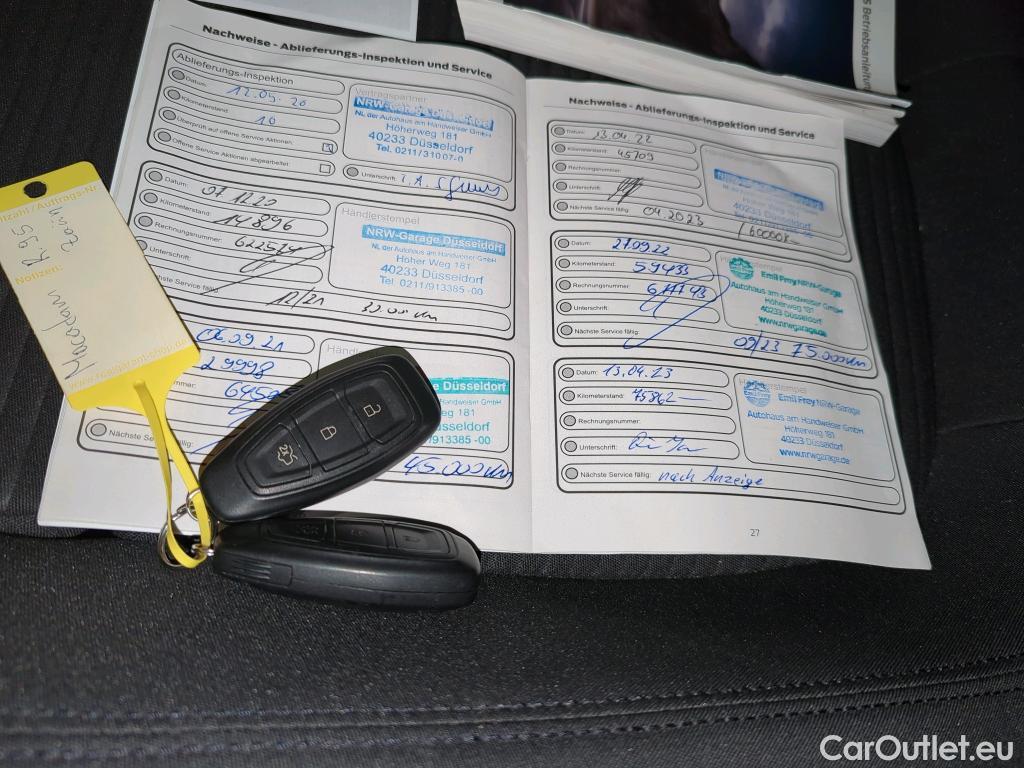 S Betriebsanleitung
Nachweise - Ablieferungs-Inspektion und Service
Ablieferungs-Inspektion
Datum: 12.05.20
Kilometerstand: 10
Überprüft auf offene Service Aktionen:
Offene Service Aktionen abgearbeitet:
Vertragspartner
NL der Autohaus am Handweiser GmbH
Höherweg 181
40233 Düsseldorf
Tel. 0211/31007-0
Unterschrift: i.A.
Datum: 07.12.20
Kilometerstand: 14.896
Rechnungsnummer:
Unterschrift:
Nächste Service fällig: 12/21 30.000 km
Händlerstempel
NRW-Garage Düsseldorf
NL der Autohaus am Handweiser GmbH
Höher Weg 181
40233 Düsseldorf
Tel. 0211/913385 -00
06.09.21
29998
Nächste Service fällig: 45.000 km
Händle
e Düsseldorf
andweiser GmbH
eg 181
sseldorf
/913385 -00
Nachweise - Ablieferungs-Inspektion und Service
Datum: 13.04.22
Kilometerstand: 45709
Rechnungsnummer:
Unterschrift:
Nächste Service fällig: 04.2023 / 60000k
40233 Düsseldorf
Datum: 27.09.22
Kilometerstand: 59433
Rechnungsnummer:
Unterschrift:
Nächste Service fällig: 09/23 75.000km
Emil Frey NRW-Garage
Autohaus am Handweiser GmbH
Höherweg 181
40233 Düsseldorf
www.nrwgarage.de
Datum: 13.04.23
Kilometerstand: 75862
Rechnungsnummer:
Unterschrift:
Nächste Service fällig: nach Anzeige
Händlerstempel
Emil Frey NRW-Garage
Autohaus am Handweiser GmbH
Höherweg 181
40233 Düsseldorf
www.nrwgarage.de
27
Notizen:
CarOutlet.eu